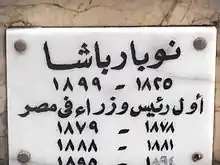 نوبار باشا
١٨٢٥ - ١٨٩٩
أول رئيس وزراء فى مصر
١٨٧٨ - ١٨٧٩
١٨٨١ - ١٨٨٨